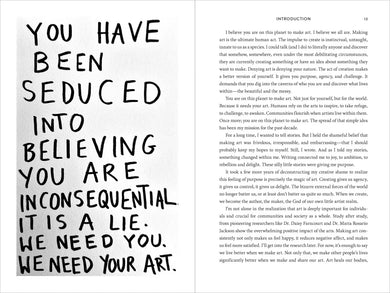 YOU HAVE
BEEN
SEDUCED
INTO
BELIEVING
YOU ARE
INCONSEQUENTIAL.
IT IS A LIE.
WE NEED YOU.
WE NEED YOUR ART.
INTRODUCTION 13
I believe you are on this planet to make art. I believe we all are. Making
art is the ultimate human act. The impulse to create is instinctual, untaught,
innate to us as a species. I could talk (and I do) to literally anyone and discover
that somehow, somewhere, even under the most debilitating circumstances,
they are currently creating something or have an idea about something they
want to make. Denying art is denying your nature. The act of creation makes
a better version of yourself. It gives you purpose, agency, and challenge. It
demands that you dig into the coteries of who you are and discover what lives
within—the beautiful and the messy.
You are on this planet to make art. Not just for yourself, but for the world.
Because it needs your art. Humans rely on the arts to inspire, to take refuge,
to challenge, to awaken. Communities flourish when artists live within them.
Once more: you are on this planet to make art. The spread of that simple idea
has been my mission for the past decade.
For a long time, I wanted to tell stories. But I held the shameful belief that
making art was frivolous, irresponsible, and embarrassing—that I should
probably keep my hopes to myself. Still, I wrote. And as I told my stories,
something changed within me. Writing connected me to joy, to ambition, to
rebellion and delight. These silly little stories were giving me purpose.
It took a few more years of deconstructing my creative shame to realize
this feeling of purpose is precisely the magic of art. Creating gives us agency,
it gives us control, it gives us delight. The bizarre external forces of the world
no longer batter us, or at least don't batter us quite so much. When we create,
we become the author, the maker, the God of our own little artist realm.
I'm not alone in the realization that art is deeply important for individu-
als and crucial for communities and society as a whole. Study after study,
from pioneering researchers like Dr. Daisy Fancourt and Dr. Maria Rosario
Jackson show the overwhelming positive impact of the arts. Making art con-
sistently not only makes us feel happy, it reduces negative affect, and makes
us feel more satisfied. I'll get into the research later. For now, it's enough to say
we live better when we make art. Not only that, we make other people's lives
significantly better when we make and share our art. Art heals our bodies,